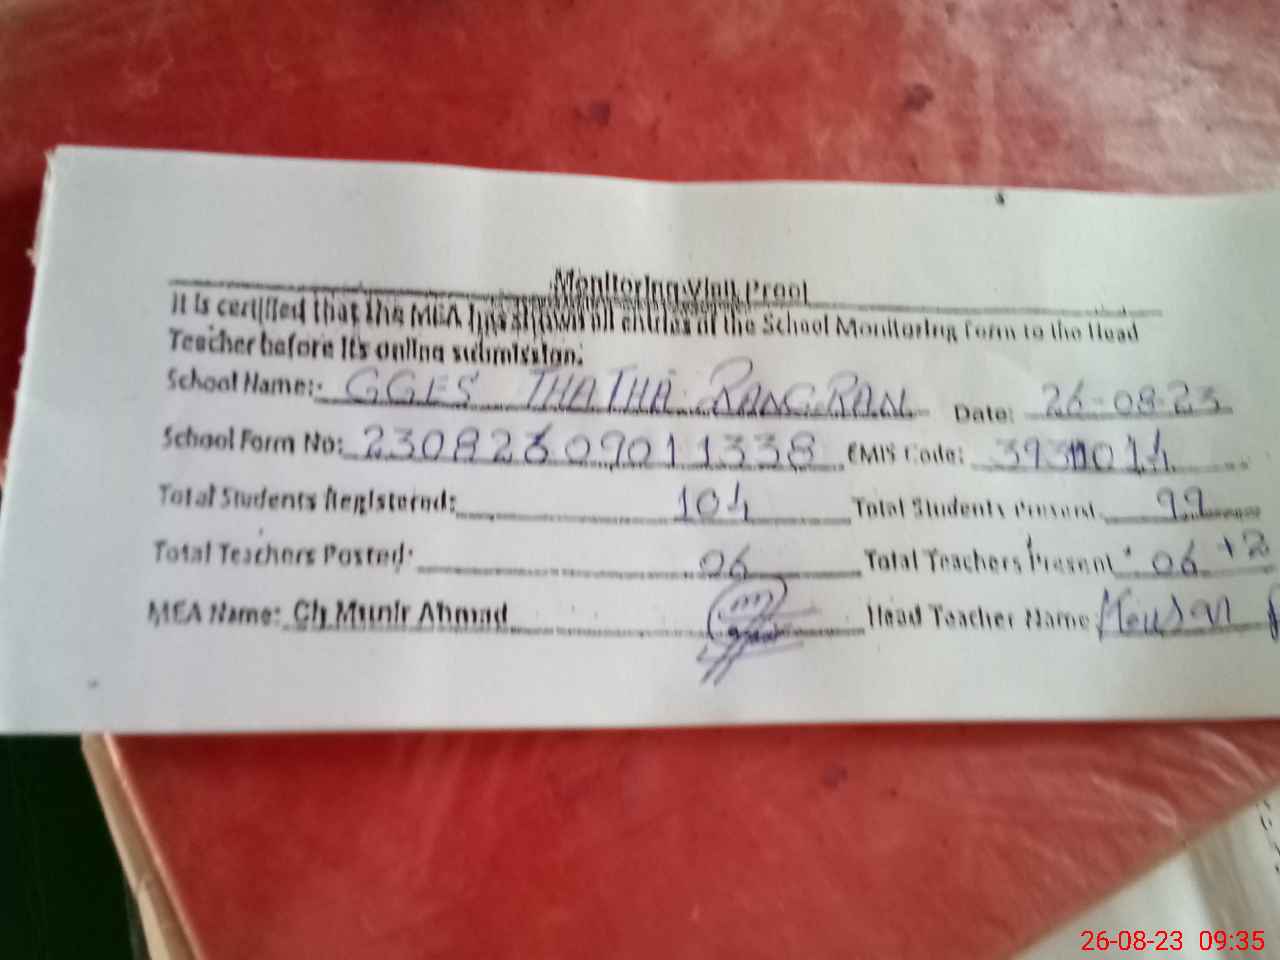 Monitoring Visit Proof
It is certified that the MEA has shown all entries of the School Monitoring Form to the Head
Teacher before its online submission.
School Name: GGES THATHA RANGRAN Date: 26-08-23
School Form No: 23082309011338 EMIS Code:
Total Students Registered: 104 Total Students Present 99
Total Teachers Posted: 06 Total Teachers Present 06 +2
MEA Name: Ch Munir Ahmad Head Teacher Name
26-08-23 09:35